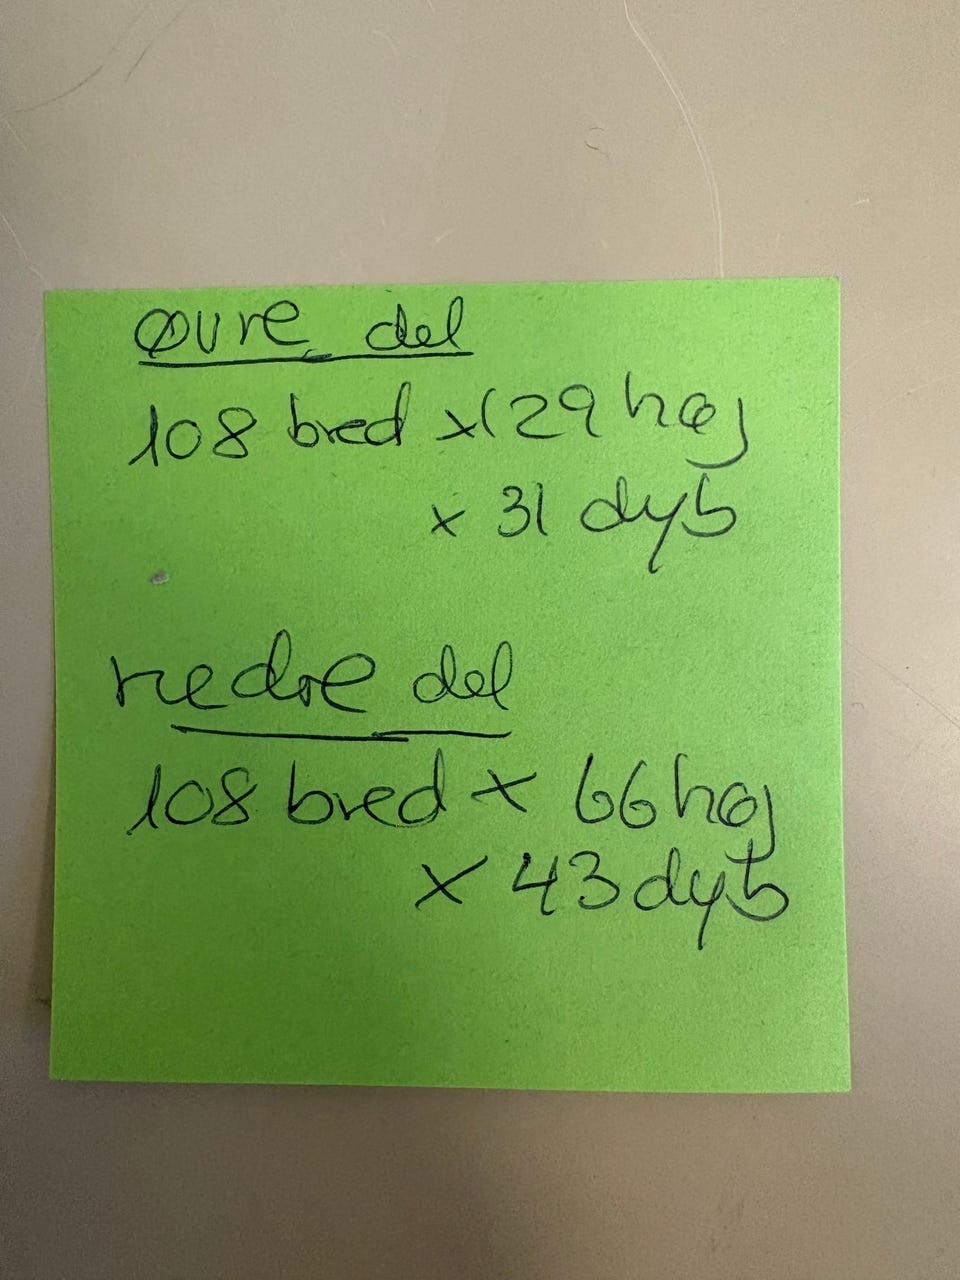 øvre del
108 bred x 129 høj
x 31 dyb
nedre del
108 bred x 66 høj
x 43 dyb